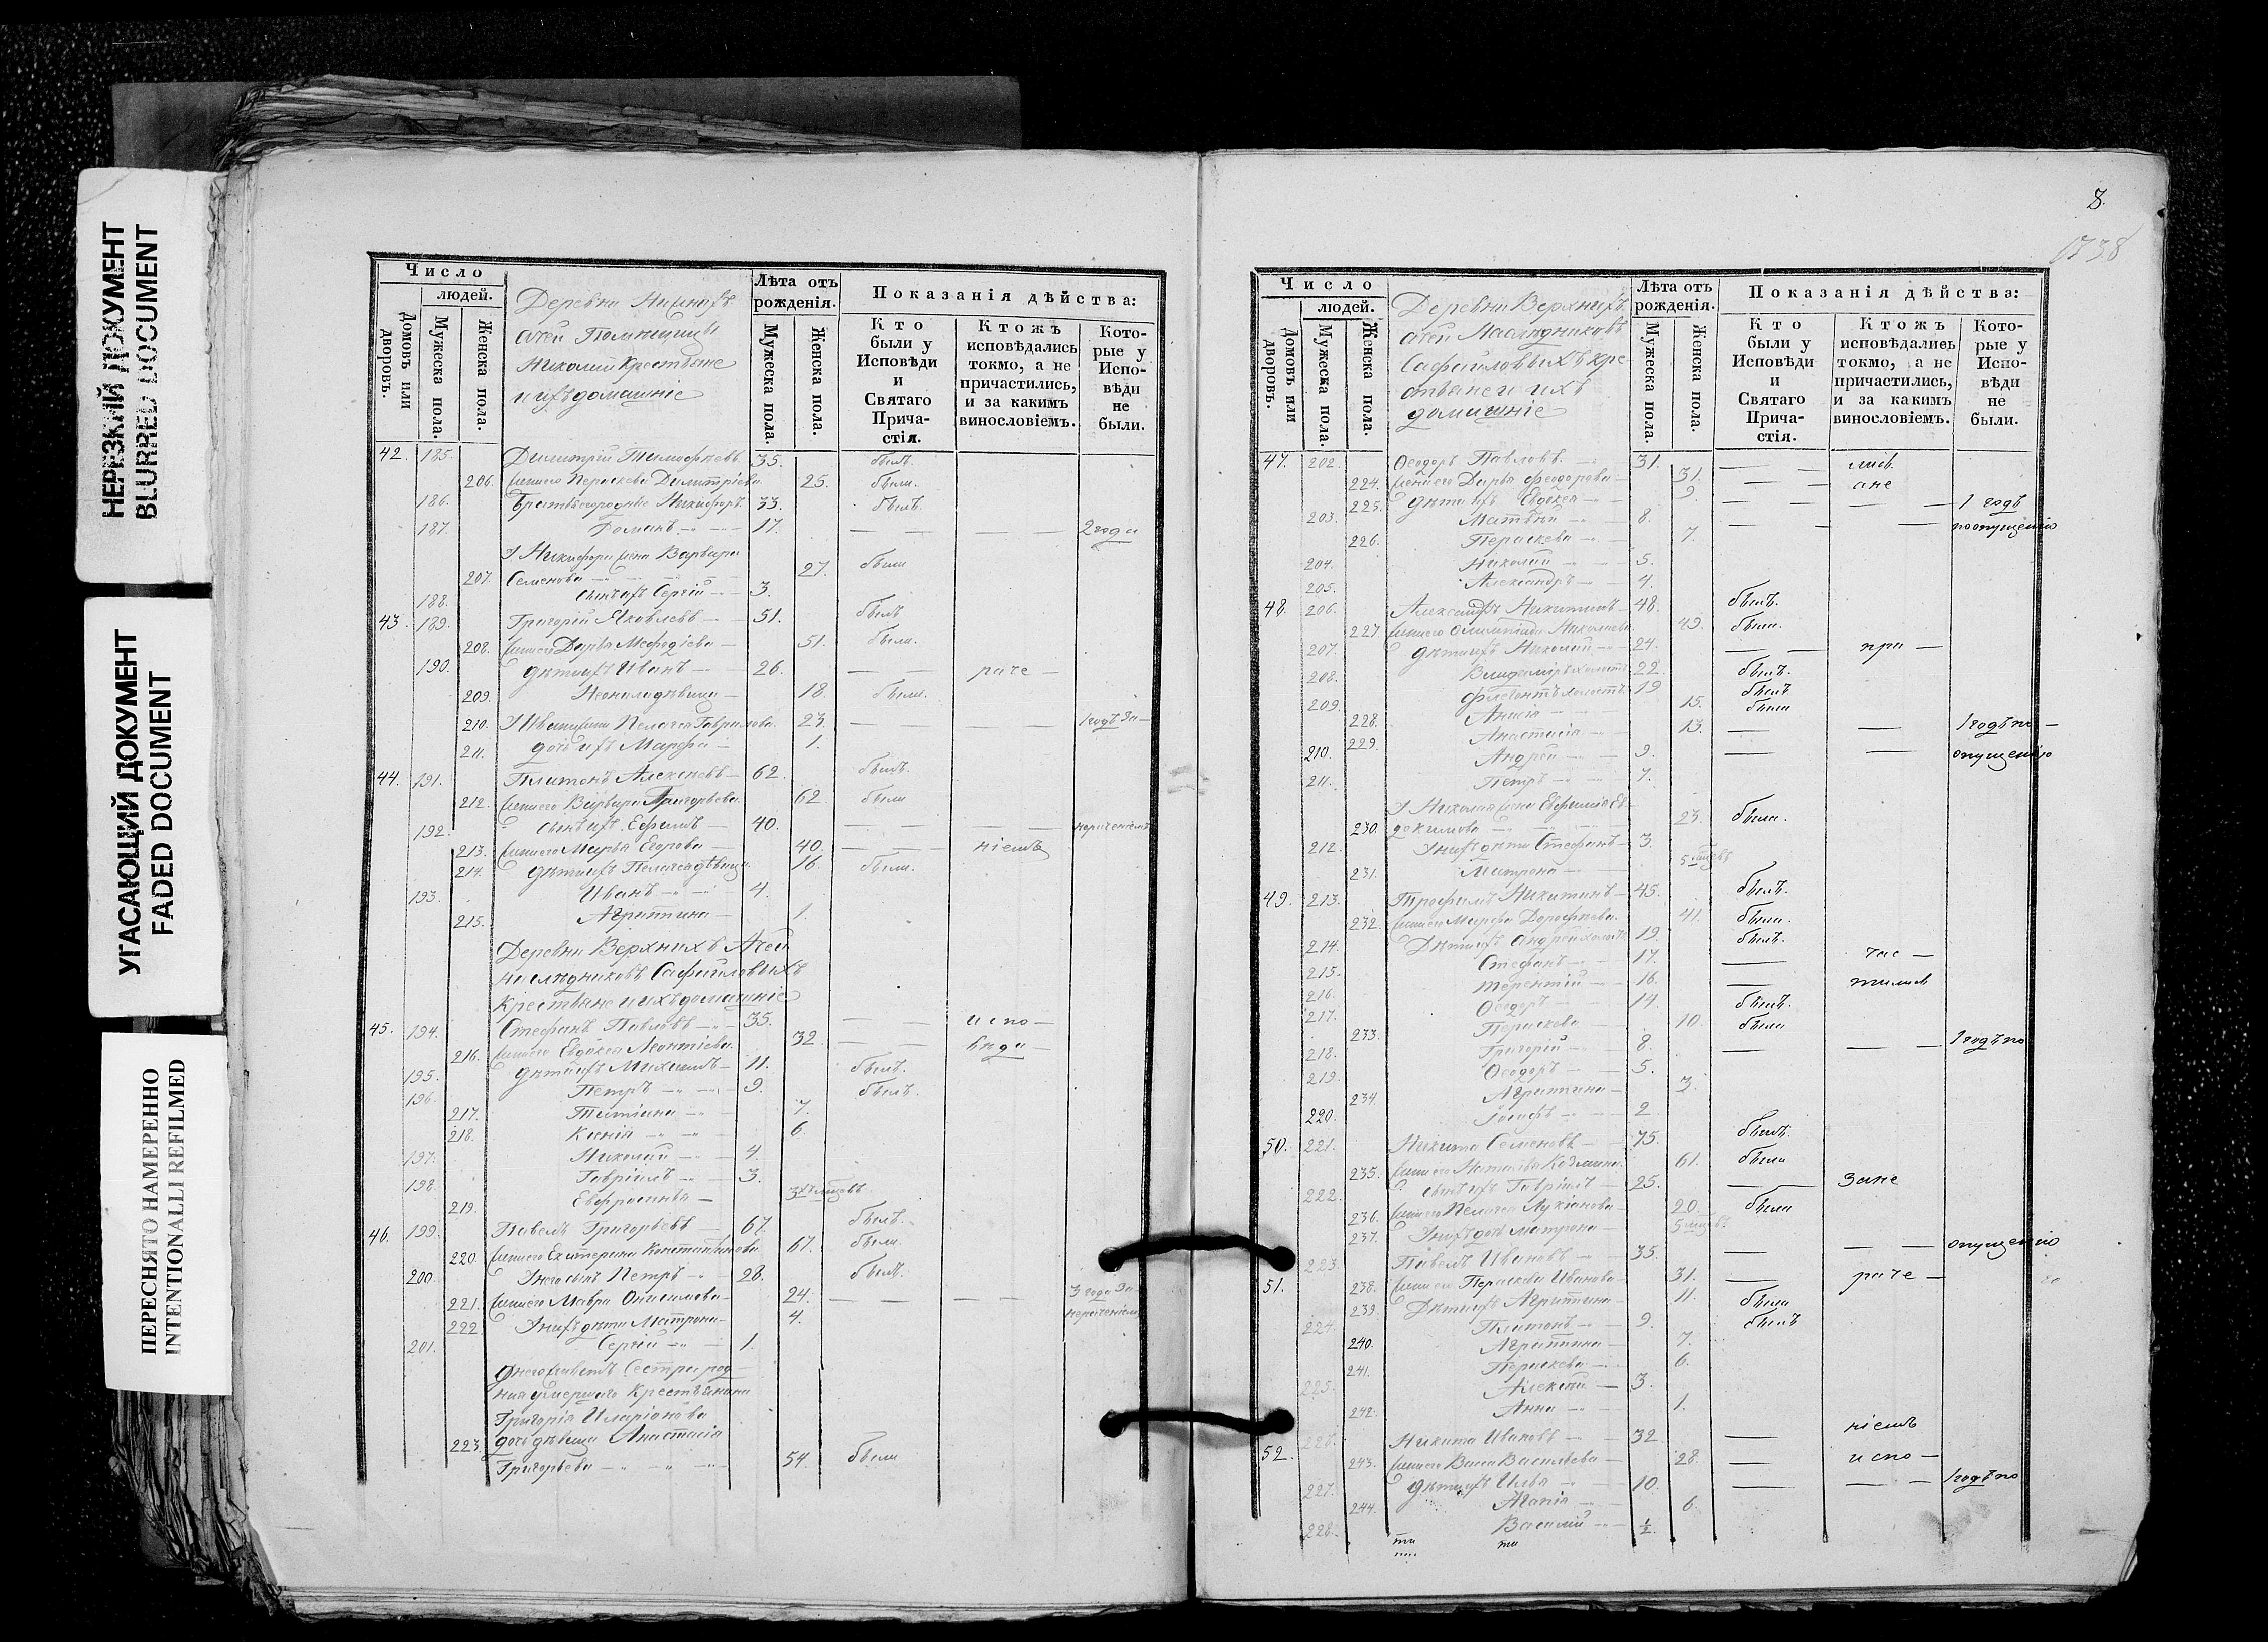 НЕРЕЗКИЙ ДОКУМЕНТ
BLURRED DOCUMENT
УГАСАЮЩИЙ ДОКУМЕНТ
FADED DOCUMENT
ПЕРЕСНЯТО НАМЕРЕННО
INTENTIONALLI REFILMED
Число
людей.
Домовъ или дворовъ.
Мужеска пола.
Женска пола.
Деревни Нижнихъ
Ачей
Николаи Крестьяне
и ихъ домашніе
Лѣта отъ рожденія.
Мужеска пола.
Женска пола.
Показанія дѣйства:
Кто были у Исповѣди и Святаго Прича-стія.
Ктожъ исповѣдались токмо, а не причастились, и за какимъ винословіемъ.
Кото-рые у Испо-вѣди не были.
42. 185. Димитрій Тимофѣевъ 35. былъ.
206. жена его Параскева Димитріева 25. была.
186. Братъ его родной Никифоръ 33. былъ.
187. Романъ 17. 2 года
У Никифора жена Варвара
207. Семенова 27. была
188. сынъ ихъ Сергій 3.
43. 189. Григорій Яковлевъ 51. былъ
208. жена его Дарья Мефодіева 51. была.
190. дѣти ихъ Иванъ 26. раче
209. дѣвица 18. была.
210. У Ивана жена Пелагея Гаврилова 23. 1 годъ за
211. дочь ихъ Марфа 1.
44. 191. Платонъ Алексѣевъ 62. былъ.
212. жена его Варвара Григорьева 62. была
192. сынъ ихъ Ефимъ 40. нераченіемъ
213. жена его Марья Егорова 40. ніемъ
214. дѣти ихъ Пелагея дѣвица 16. была.
193. Иванъ 4.
215. Агрипина 1.
Деревни Верхнихъ Ачей
наслѣдниковъ Сафайловыхъ
крестьяне и ихъ домашніе
45. 194. Стефанъ Павловъ 35. испо
216. жена его Евдокея Леонтіева 32.
195. дѣти ихъ Михаилъ 11. былъ.
196. Петръ 9. былъ.
217. Татіана 7.
218. Ксенія 6.
197. Николай 4.
198. Гавріилъ 3.
219. Евфросинья
46. 199. Павелъ Григорьевъ 67. былъ.
220. жена его Екатерина Константинова 67. была.
200. У него сынъ Петръ 28. былъ.
221. жена его Мавра Онисимова 24. 3 года за
222. У нихъ дѣти Матрона 4. нераченіемъ
201. Сергій 1.
У него живетъ Сестра род
ная умершаго Крестьянина
Григорія Иларіонова
223. дочь дѣвица Анастасія
Григорьева 54 была
8.
1738
Число
людей.
Домовъ или дворовъ.
Мужеска пола.
Женска пола.
Деревни Верхнихъ
Ачей Наслѣдниковъ
Сафайловыхъ кре-
стьяне и ихъ
домашніе
Лѣта отъ рожденія.
Мужеска пола.
Женска пола.
Показанія дѣйства:
Кто были у Исповѣди и Святаго Прича-стія.
Ктожъ исповѣдались токмо, а не причастились, и за какимъ винословіемъ.
Кото-рые у Испо-вѣди не были.
47. 202. Ѳеодоръ Павловъ 31. лись
224. жена его Дарья Феодорова 31. ане
225. дѣти ихъ Евдокея 9. 1 годъ
203. Матвѣй 8. по опущенію
226. Параскева 7.
204. Николай 5.
205. Александръ 4.
48. 206. Александръ Никитинъ 48. былъ.
227 жена его Олимпіада Николаева 49. была.
207. дѣти ихъ Николай 24. при
208. Владиміръ холостъ 22. былъ.
209. Флегонтъ холостъ 19 былъ
228. Анисія 15. была
229. Анастасія 13. 1 годъ по
210. Андрей 9. опущенію
211. Петръ 7.
У Николая жена Евфимія Ев-
230. докимова 23. была.
212. У нихъ дѣти Стефанъ 3.
231. Матрона 5
49. 213. Трофимъ Никитинъ 45. былъ.
232. жена его Марфа Дорофѣева 41. была.
214. Дѣти ихъ Андрей холостъ 19. былъ.
215. Стефанъ 17. час
216. Терентій 16. тились
217. Ѳеодоръ 14. былъ.
233. Параскева 10. была
218. Григорій 8. 1 годъ по
219. Ѳеодоръ 5.
234. Агрипина 3.
220. Іосифъ 2
50. 221. Никита Семеновъ 75. былъ.
235. жена его Наталья Козмина 61. была
222. сынъ ихъ Гавріилъ 25. Зане
236. жена его Пелагея Лукіанова 20. была
237. У нихъ дочь Матрона 5
51. 223. Павелъ Ивановъ 35. опущенію
238. жена его Параскева Иванова 31. раче
239. Дѣти ихъ Агрипина 11. была
224. Платонъ 9. былъ
240. Агрипина 7.
241. Параскева 6.
225. Алексѣй 3.
242. Анна 1.
52. 226. Никита Ивановъ 32 ніемъ
243. жена его Васса Васильева 28. испо
227. дѣти ихъ Илья 10. 1 годъ по
244. Агапія 6.
228. Василій ½.